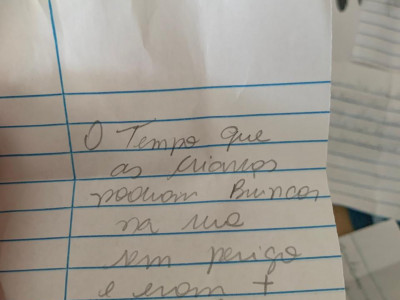 O Tempo que
as crianças
podiam Brincar
na rua
sem perigo
e eram +